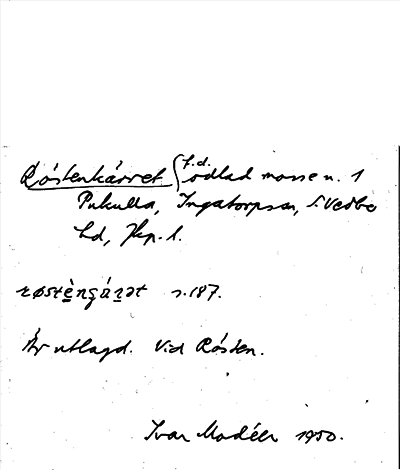 Röstenkärret (f.d. odlad mosse n. 1
Pukulla, Ingatorps sn, S. Vedbo
hd, Jkp. l.
røstèngá̱rət s. 187.
Är utlagd. Vid Rösten.
Ivar Modéer 1950.